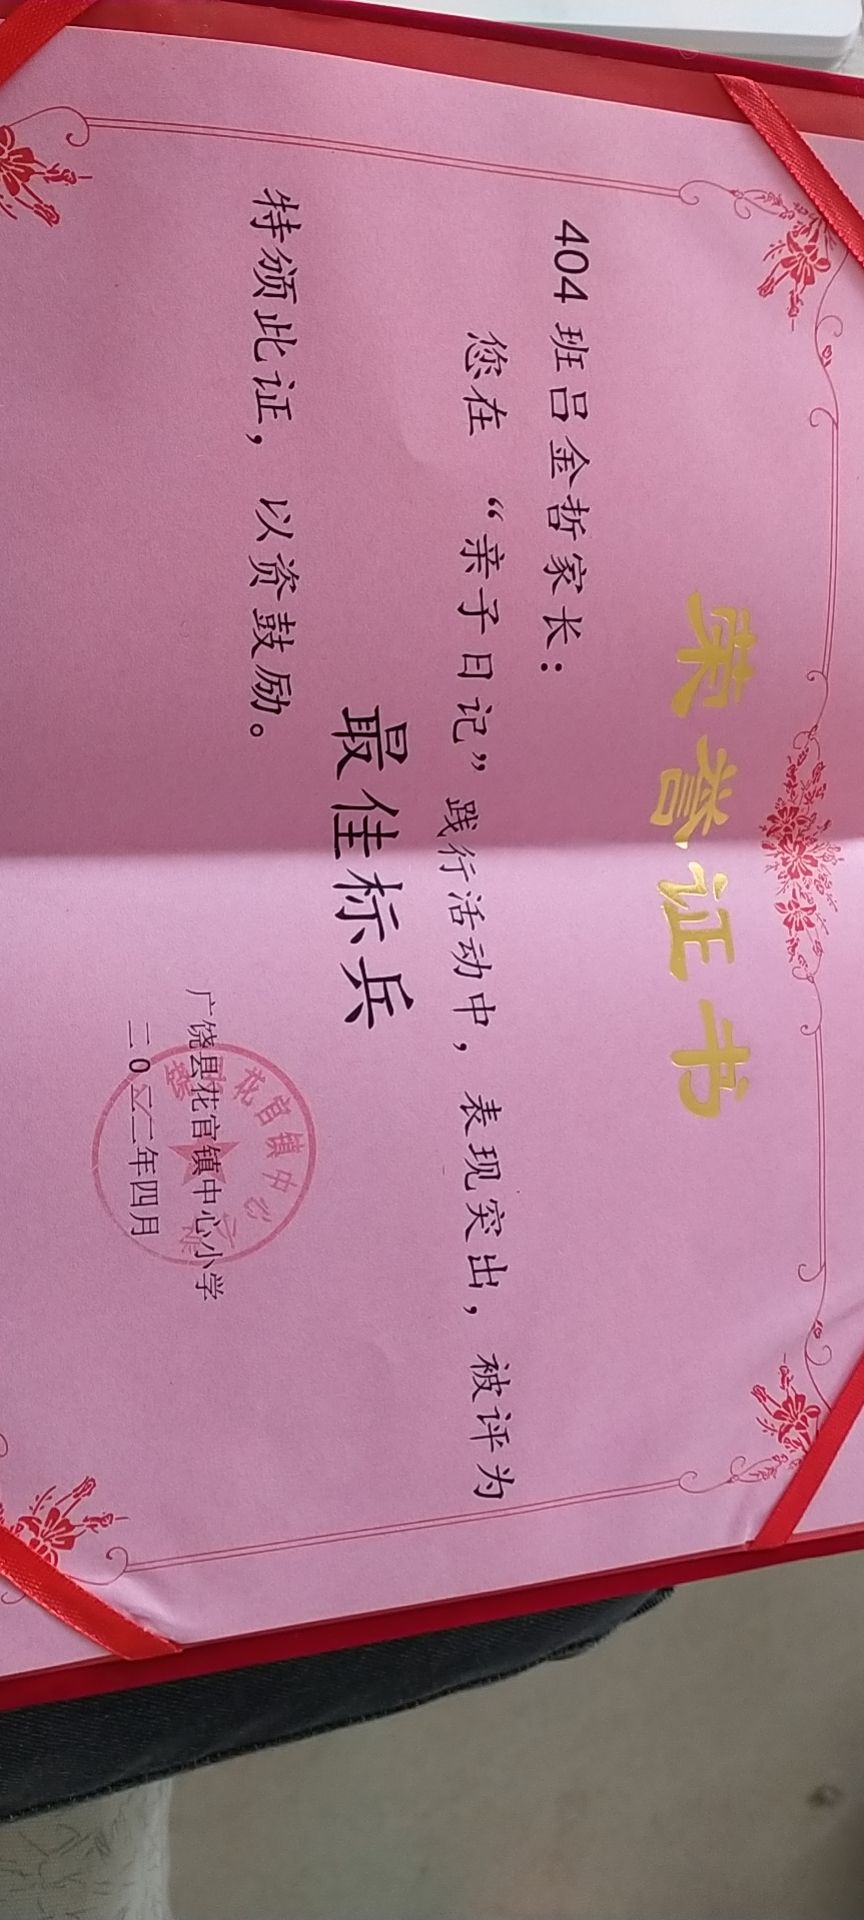 荣誉证书
404班吕金哲家长：
您在“亲子日记”践行活动中，表现突出，被评为
最佳标兵
特颁此证，以资鼓励。
广饶县花官镇中心小学
二0二二年四月